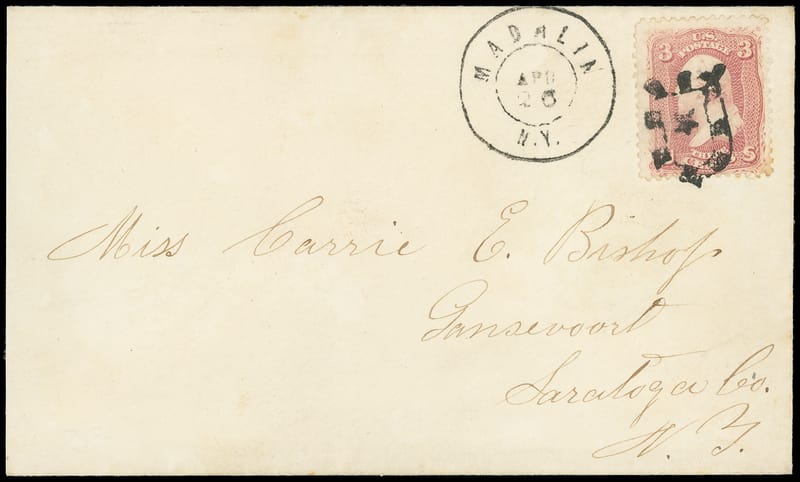 MADALIN
APR
26
N.Y.
3 U.S. 3
POSTAGE
U S
CENTS
Miss Carrie E. Bishop
Gansevoort
Saratoga Co.
N. Y.